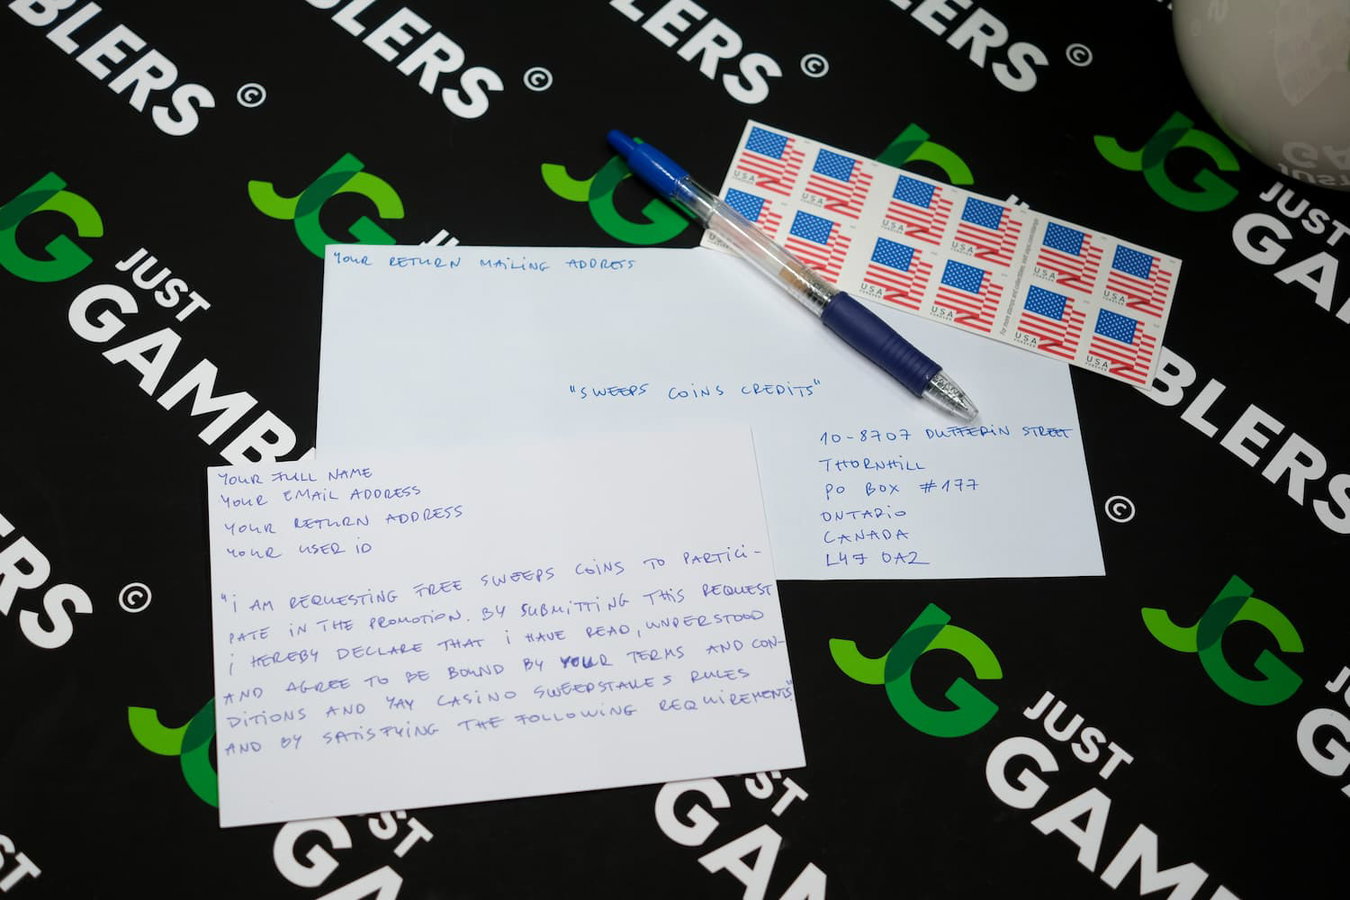 BLERS ©
BLERS ©
LERS ©
ERS ©
JG
JG
JG
JG
JUST
GAMB
JUST
GA
BLERS
©
ERS ©
YOUR RETURN MAILING ADDRESS
"SWEEPS COINS CREDITS"
10-8707 DUFFERIN STREET
THORNHILL
PO BOX #177
ONTARIO
CANADA
L4J 0A2
YOUR FULL NAME
YOUR EMAIL ADDRESS
YOUR RETURN ADDRESS
YOUR USER ID
"I AM REQUESTING FREE SWEEPS COINS TO PARTICI-
PATE IN THE PROMOTION. BY SUBMITTING THIS REQUEST
I HEREBY DECLARE THAT I HAVE READ, UNDERSTOOD
AND AGREE TO BE BOUND BY YOUR TERMS AND CON-
DITIONS AND YAY CASINO SWEEPSTAKES RULES
AND BY SATISFYING THE FOLLOWING REQUIREMENTS"
USA
USA
USA
USA
USA
USA
USA
USA
USA
USA
USA
JG
JG
JG
JUST
GAMB
JUST
GAM
JUST
GAM
ST